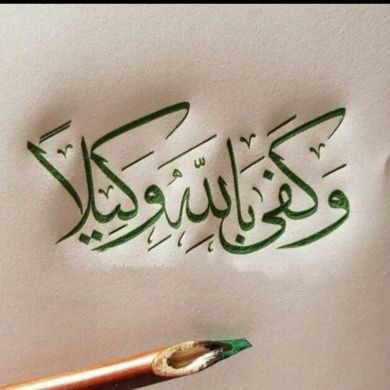 وَكَفَىٰ بِاللَّهِ وَكِيلاً